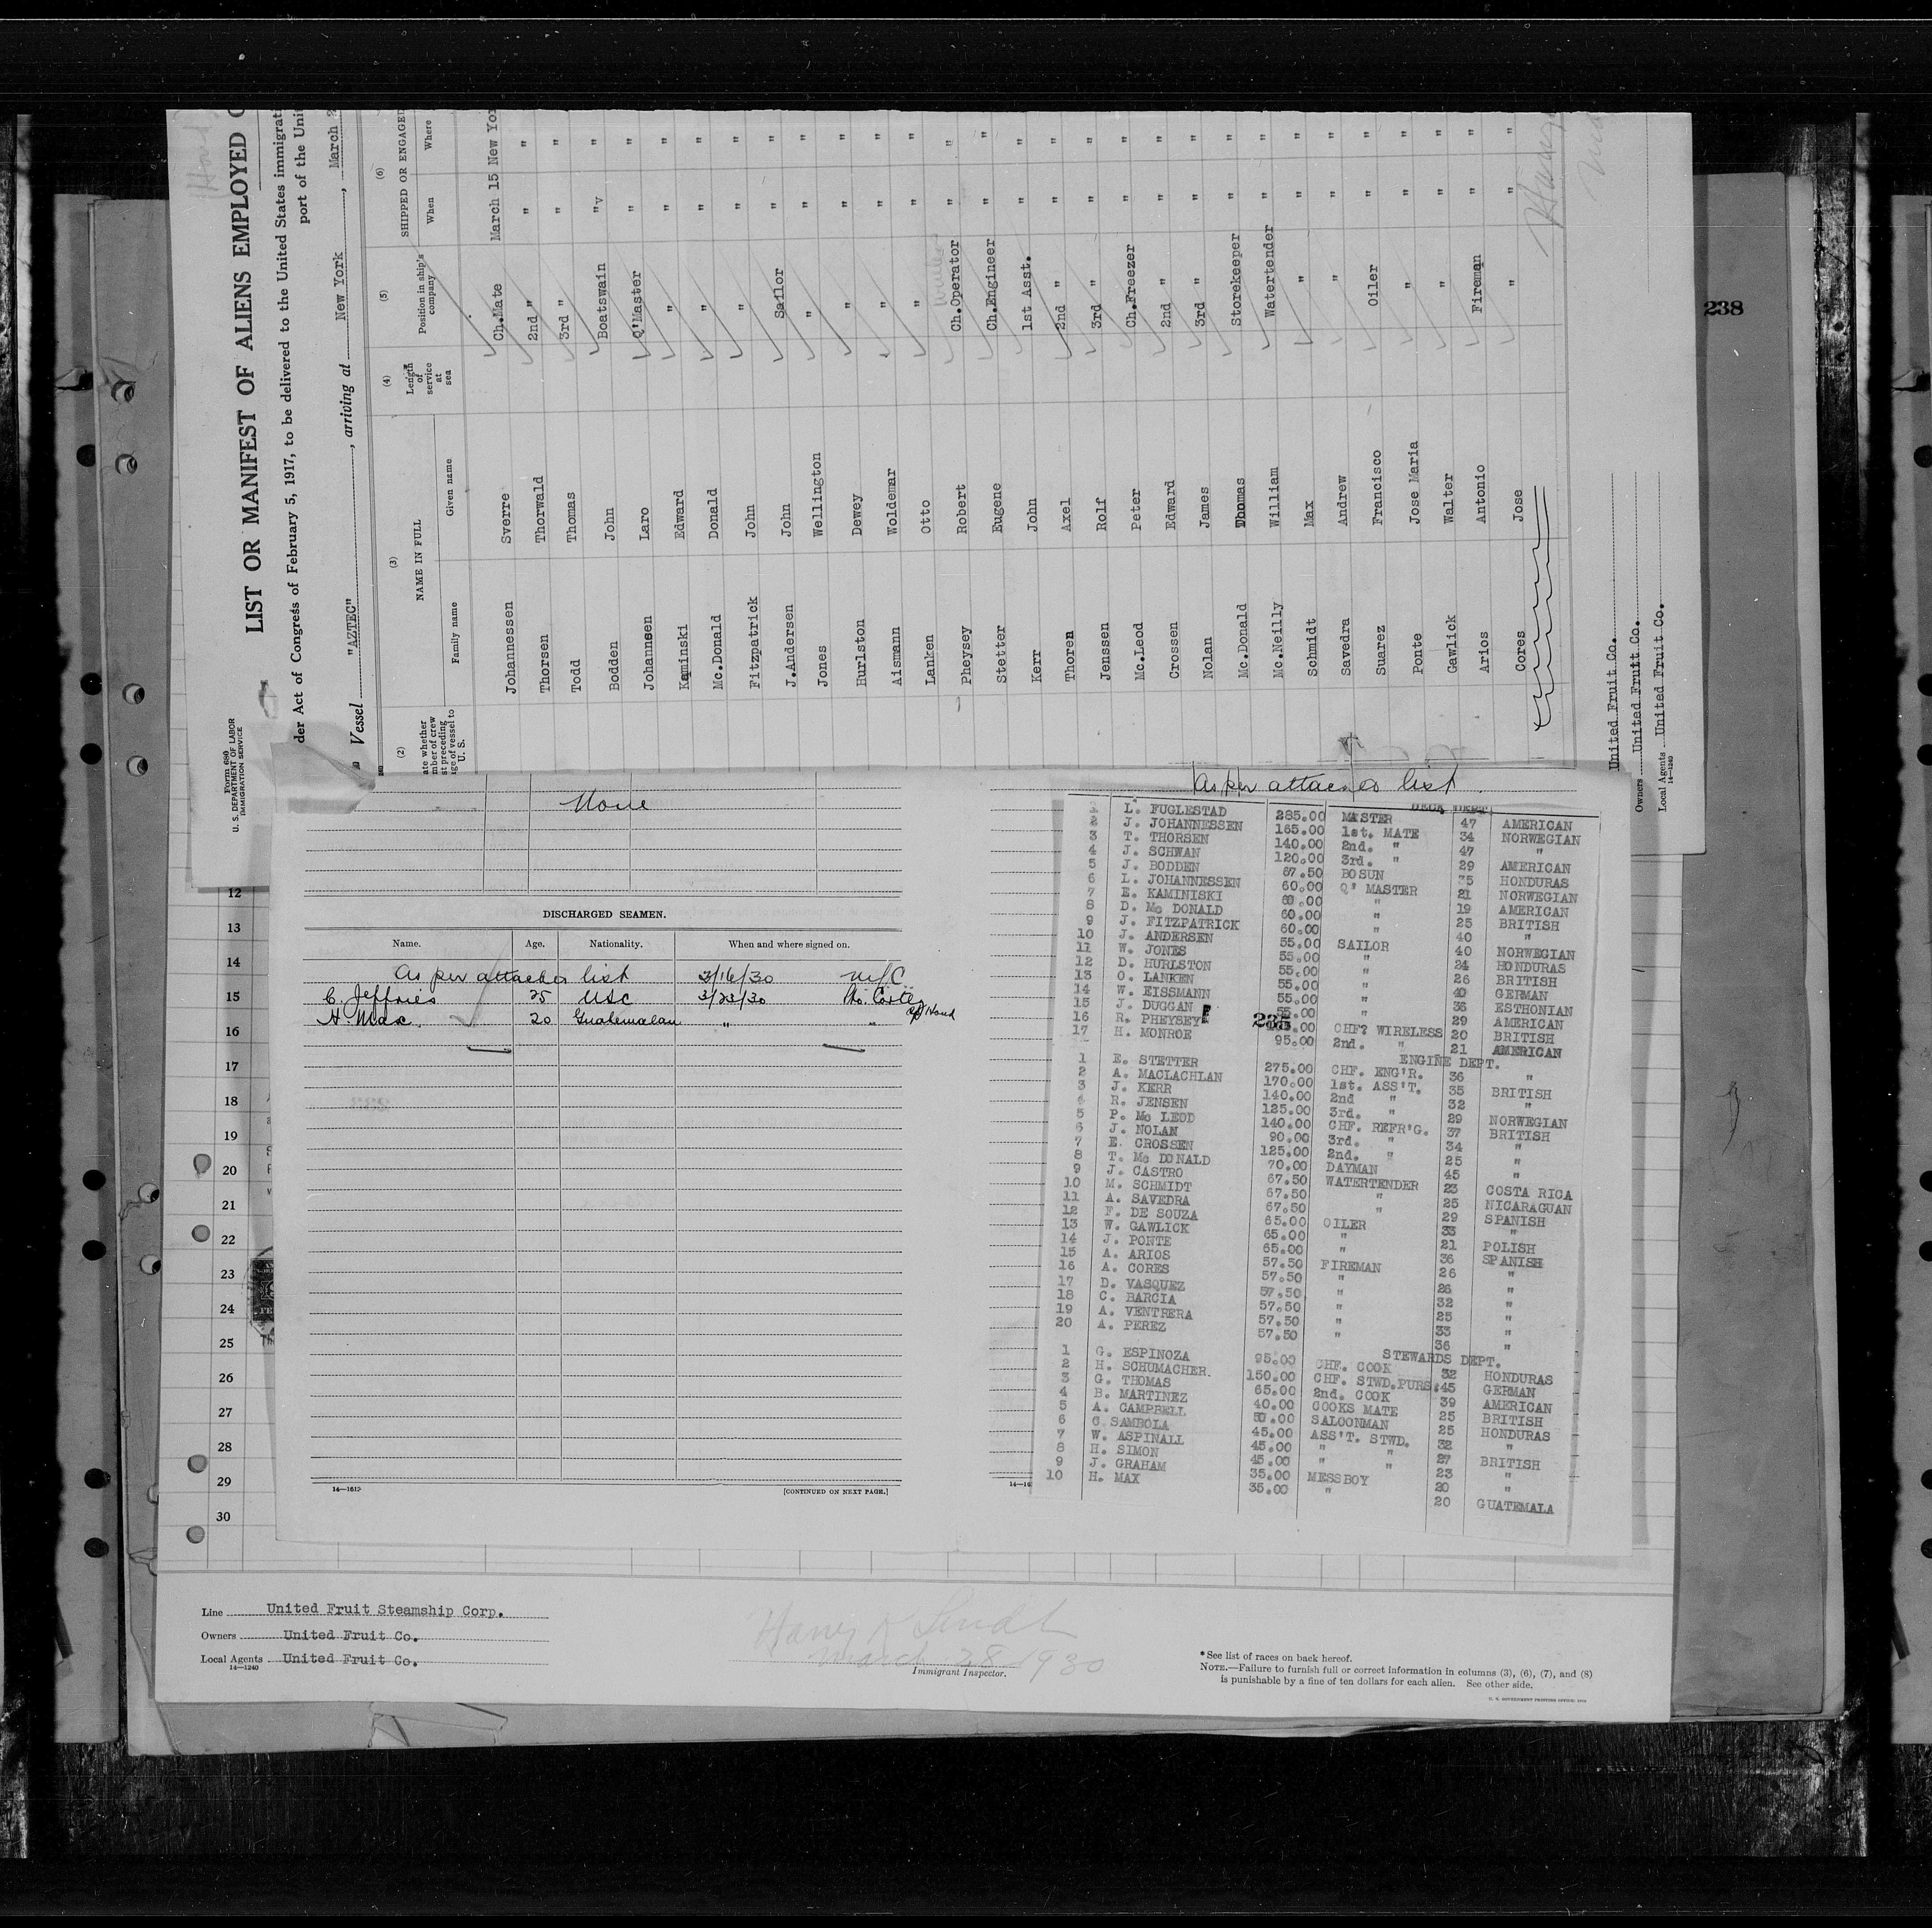 LIST OR MANIFEST OF ALIENS EMPLOYED
der Act of Congress of February 5, 1917, to be delivered to the United States immigrat
port of the Uni
Vessel "AZTEC", arriving at New York, March
Form 680
U. S. DEPARTMENT OF LABOR
IMMIGRATION SERVICE
(2) (3) (4) (5) (6)
NAME IN FULL
SHIPPED OR ENGAGED
Family name Given name Length of service at sea Position in ship's company When Where
Johannessen Sverre Ch.Mate March 15 New Yor
Thorsen Thorwald 2nd " " "
Todd Thomas 3rd " " "
Bodden John Boatswain "v "
Johannsen Laro Q'Master " "
Kaminski Edward " " "
Mc.Donald Donald " " "
Fitzpatrick John " " "
J.Andersen John Sailor " "
Jones Wellington " " "
Hurlston Dewey " " "
Aismann Woldemar " " "
Lanken Otto " " "
Pheysey Robert Ch.Operator " "
Stetter Eugene Ch.Engineer " "
Kerr John 1st Asst. " "
Thoren Axel 2nd " " "
Jenssen Rolf 3rd " " "
Mc.Leod Peter Ch.Freezer " "
Crossen Edward 2nd " " "
Nolan James 3rd " " "
Mc.Donald Thomas Storekeeper " "
Mc.Neilly William Watertender " "
Schmidt Max " " "
Savedra Andrew " " "
Suarez Francisco Oiler " "
Ponte Jose Maria " " "
Gawlick Walter " " "
Arios Antonio Fireman " "
Cores Jose " " "
United Fruit Co.
Owners United Fruit Co.
Local Agents United Fruit Co.
14—1240
238
None
DISCHARGED SEAMEN.
Name. Age. Nationality. When and where signed on.
As per attached list 3/16/30 N.Y.C.
C. Jeffries 25 USC 3/23/30 Pto. Cortez
H. Max. 20 Guatemalan " " Hond
14—1613
[CONTINUED ON NEXT PAGE.]
As per attached list
DECK DEPT.
L. FUGLESTAD 285.00 MASTER 47 AMERICAN
2 J. JOHANNESSEN 165.00 1st. MATE 34 NORWEGIAN
3 T. THORSEN 140.00 2nd. " 47 "
4 J. SCHWAN 120.00 3rd. " 29 AMERICAN
5 J. BODDEN 67.50 BOSUN 35 HONDURAS
6 L. JOHANNESSEN 60.00 Q' MASTER 21 NORWEGIAN
7 E. KAMINISKI 60.00 " 19 AMERICAN
8 D. Mc DONALD 60.00 " 25 BRITISH
9 J. FITZPATRICK 60.00 " 40 "
10 J. ANDERSEN 55.00 SAILOR 40 NORWEGIAN
11 W. JONES 55.00 " 24 HONDURAS
12 D. HURLSTON 55.00 " 26 BRITISH
13 O. LANKEN 55.00 " 40 GERMAN
14 W. EISSMANN 55.00 " 36 ESTHONIAN
15 J. DUGGAN 55.00 " 29 AMERICAN
16 R. PHEYSEY CHF? WIRELESS 20 BRITISH
17 H. MONROE 95.00 2nd. " 21 AMERICAN
235
ENGINE DEPT.
1 E. STETTER 275.00 CHF. ENG'R. 36 "
2 A. MACLACHLAN 170.00 1st. ASS'T. 35 BRITISH
3 J. KERR 140.00 2nd " 32 "
4 R. JENSEN 125.00 3rd. " 29 NORWEGIAN
5 P. Mc LEOD 140.00 CHF. REFR'G. 37 BRITISH
6 J. NOLAN 90.00 3rd. " 34 "
7 E. CROSSEN 125.00 2nd. " 25 "
8 T. Mc DONALD 70.00 DAYMAN 45 "
9 J. CASTRO 67.50 WATERTENDER 23 COSTA RICA
10 M. SCHMIDT 67.50 " 25 NICARAGUAN
11 A. SAVEDRA 67.50 " 29 SPANISH
12 F. DE SOUZA 65.00 OILER 33 "
13 W. GAWLICK 65.00 " 21 POLISH
14 J. PONTE 65.00 " 36 SPANISH
15 A. ARIOS 57.50 FIREMAN 26 "
16 A. CORES 57.50 " 26 "
17 D. VASQUEZ 57.50 " 32 "
18 C. BARCIA 57.50 " 25 "
19 A. VENTRERA 57.50 " 33 "
20 A. PEREZ 57.50 " 36 "
STEWARDS DEPT.
1 G. ESPINOZA 95.00 CHF. COOK 32 HONDURAS
2 H. SCHUMACHER. 150.00 CHF. STWD.PURS. 45 GERMAN
3 G. THOMAS 65.00 2nd. COOK 39 AMERICAN
4 B. MARTINEZ 40.00 COOKS MATE 25 BRITISH
5 A. CAMPBELL 50.00 SALOONMAN 25 HONDURAS
6 C. SAMBOLA 45.00 ASS'T. STWD. 32 "
7 W. ASPINALL 45.00 " " 27 BRITISH
8 H. SIMON 45.00 " " 23 "
9 J. GRAHAM 35.00 MESSBOY 20 "
10 H. MAX 35.00 " 20 GUATEMALA
12
13
14
15
16
17
18
19
20
21
22
23
24
25
26
27
28
29
30
Line United Fruit Steamship Corp.
Owners United Fruit Co.
Local Agents United Fruit Co.
14—1240
March 28 1930
Immigrant Inspector.
* See list of races on back hereof.
NOTE.—Failure to furnish full or correct information in columns (3), (6), (7), and (8)
is punishable by a fine of ten dollars for each alien. See other side.